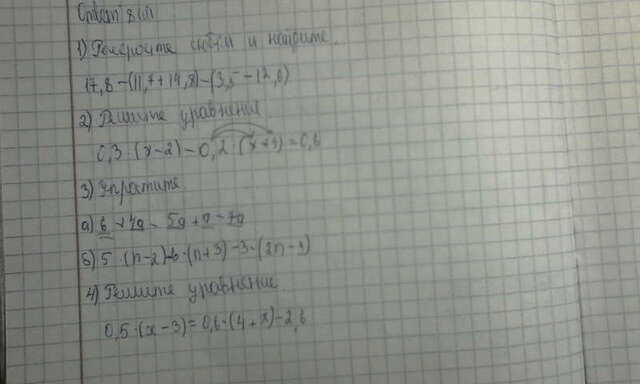 1) Раскройте скобки и найдите.
17,8-(11,7+14,8)-(3,5-12,6)
2) Решите уравнение
0,3·(x-2)-0,2·(x+1)=0,6
3) Упростите
а) 6+4a-5a+a-7a
б) 5·(n-2)-6·(n+3)-3·(2n-9)
4) Решите уравнение.
0,5·(x-3)=0,6·(4+x)-2,6